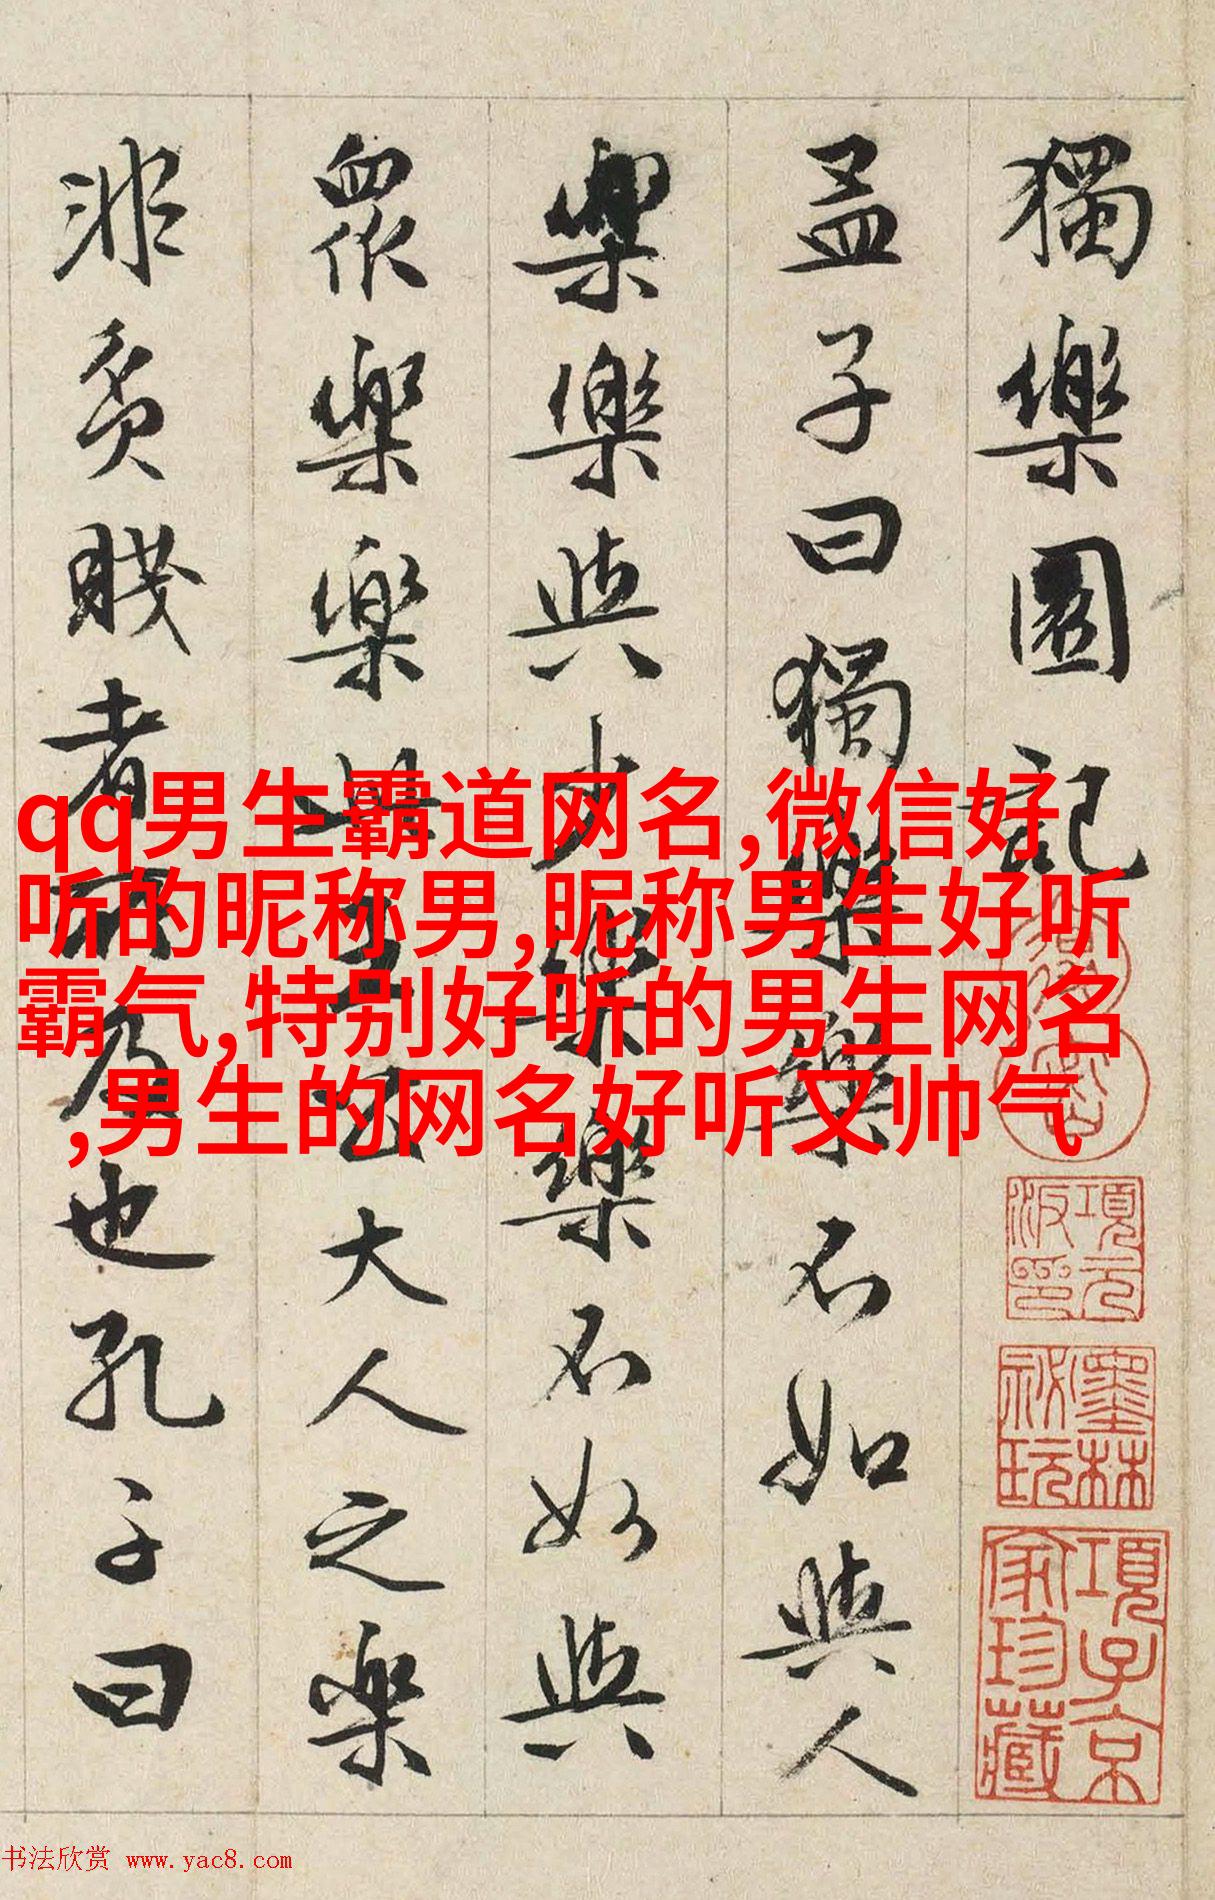 獨樂園記
孟子曰獨樂樂不如與人
樂樂與少樂樂不如與
眾樂樂此王公大人之樂
非貧賤者所及也孔子曰
qq男生霸道网名,微信好
听的昵称男,昵称男生好听
霸气,特别好听的男生网名
,男生的网名好听又帅气
項元汴印
墨林秘玩
項子京家珍藏
书法欣赏 www.yac8.com